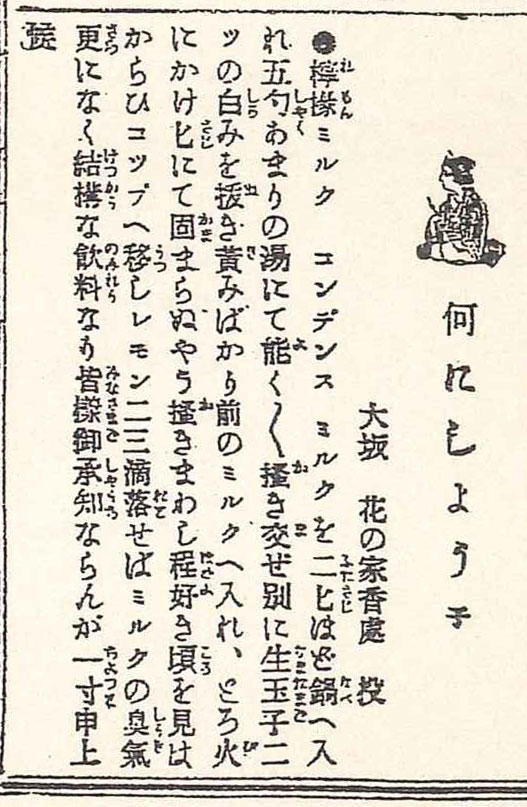 何にしよう子
大坂 花の家香處 投
●檸檬ミルク コンデンスミルクを二匕ほど鍋へ入
れ五勺あまりの湯にて能く〱掻き交ぜ別に生玉子二
ツの白みを拔き黄みばかり前のミルクへ入れ、とろ火
にかけ匕にて固まらぬやう掻きまわし程好き頃を見は
からひコップへ移しレモン二三滴落せばミルクの臭氣
更になく結搆な飲料なり皆樣御承知ならんが一寸申上
候